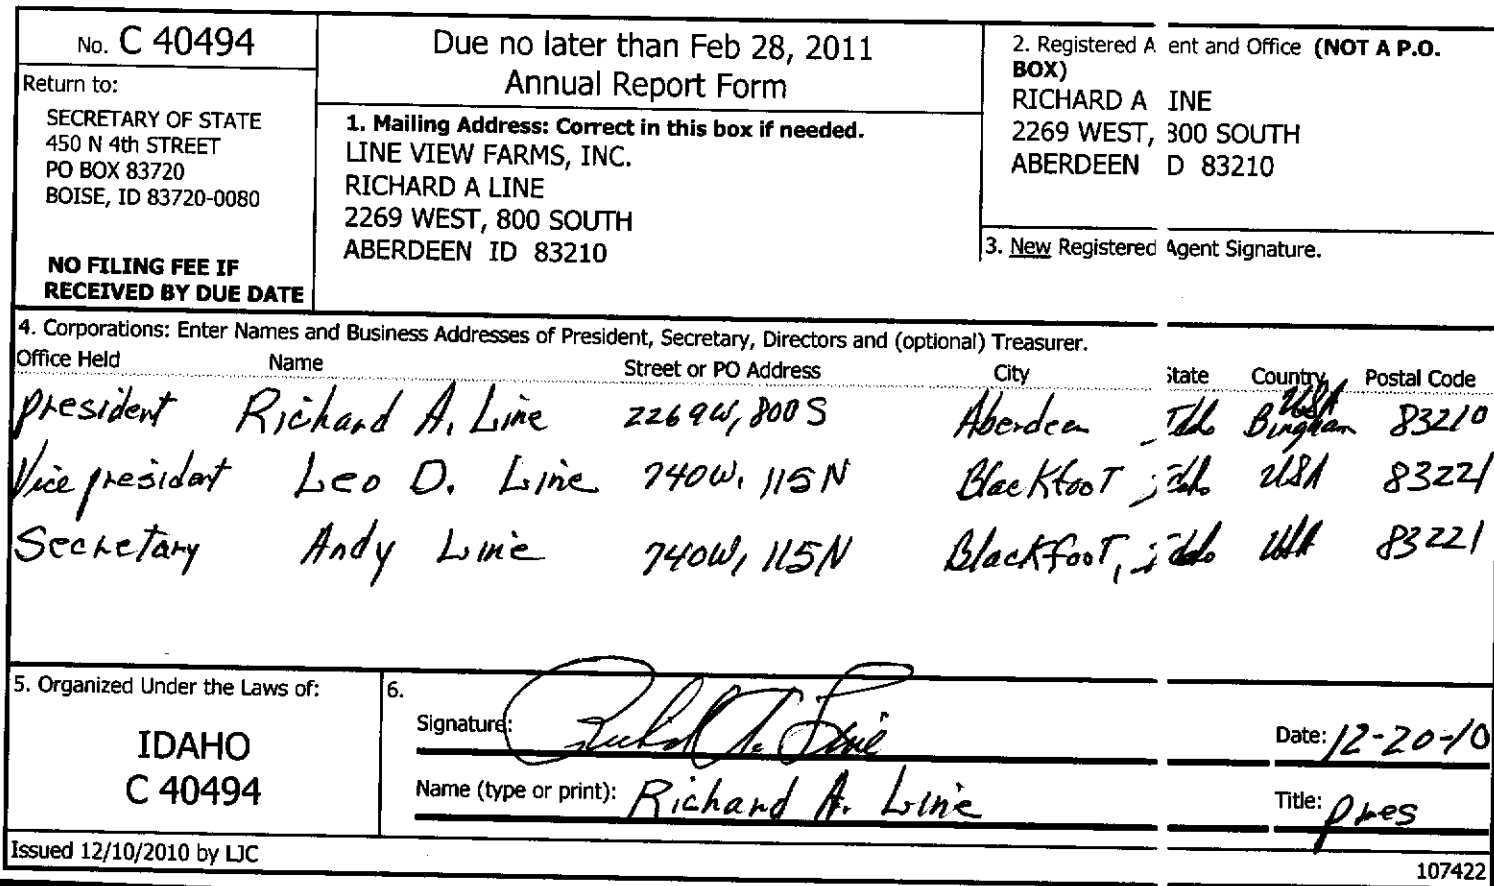 No. C 40494
Return to:
SECRETARY OF STATE
450 N 4th STREET
PO BOX 83720
BOISE, ID 83720-0080
NO FILING FEE IF
RECEIVED BY DUE DATE
Due no later than Feb 28, 2011
Annual Report Form
1. Mailing Address: Correct in this box if needed.
LINE VIEW FARMS, INC.
RICHARD A LINE
2269 WEST, 800 SOUTH
ABERDEEN ID 83210
2. Registered A ent and Office (NOT A P.O.
BOX)
RICHARD A INE
2269 WEST, 800 SOUTH
ABERDEEN D 83210
3. New Registered Agent Signature.
4. Corporations: Enter Names and Business Addresses of President, Secretary, Directors and (optional) Treasurer.
Office Held Name Street or PO Address City State Country Postal Code
president Richard A. Line 2269W, 800 S Aberdeen Idaho Bingham USA 83210
Vice president Leo D. Line 740W, 115N Blackfoot, Idaho USA 83221
Secretary Andy Line 740W, 115N Blackfoot, Idaho USA 83221
5. Organized Under the Laws of:
IDAHO
C 40494
6.
Signature: Richard A. Line Date: 12-20-10
Name (type or print): Richard A. Line Title: pres
Issued 12/10/2010 by LJC
107422